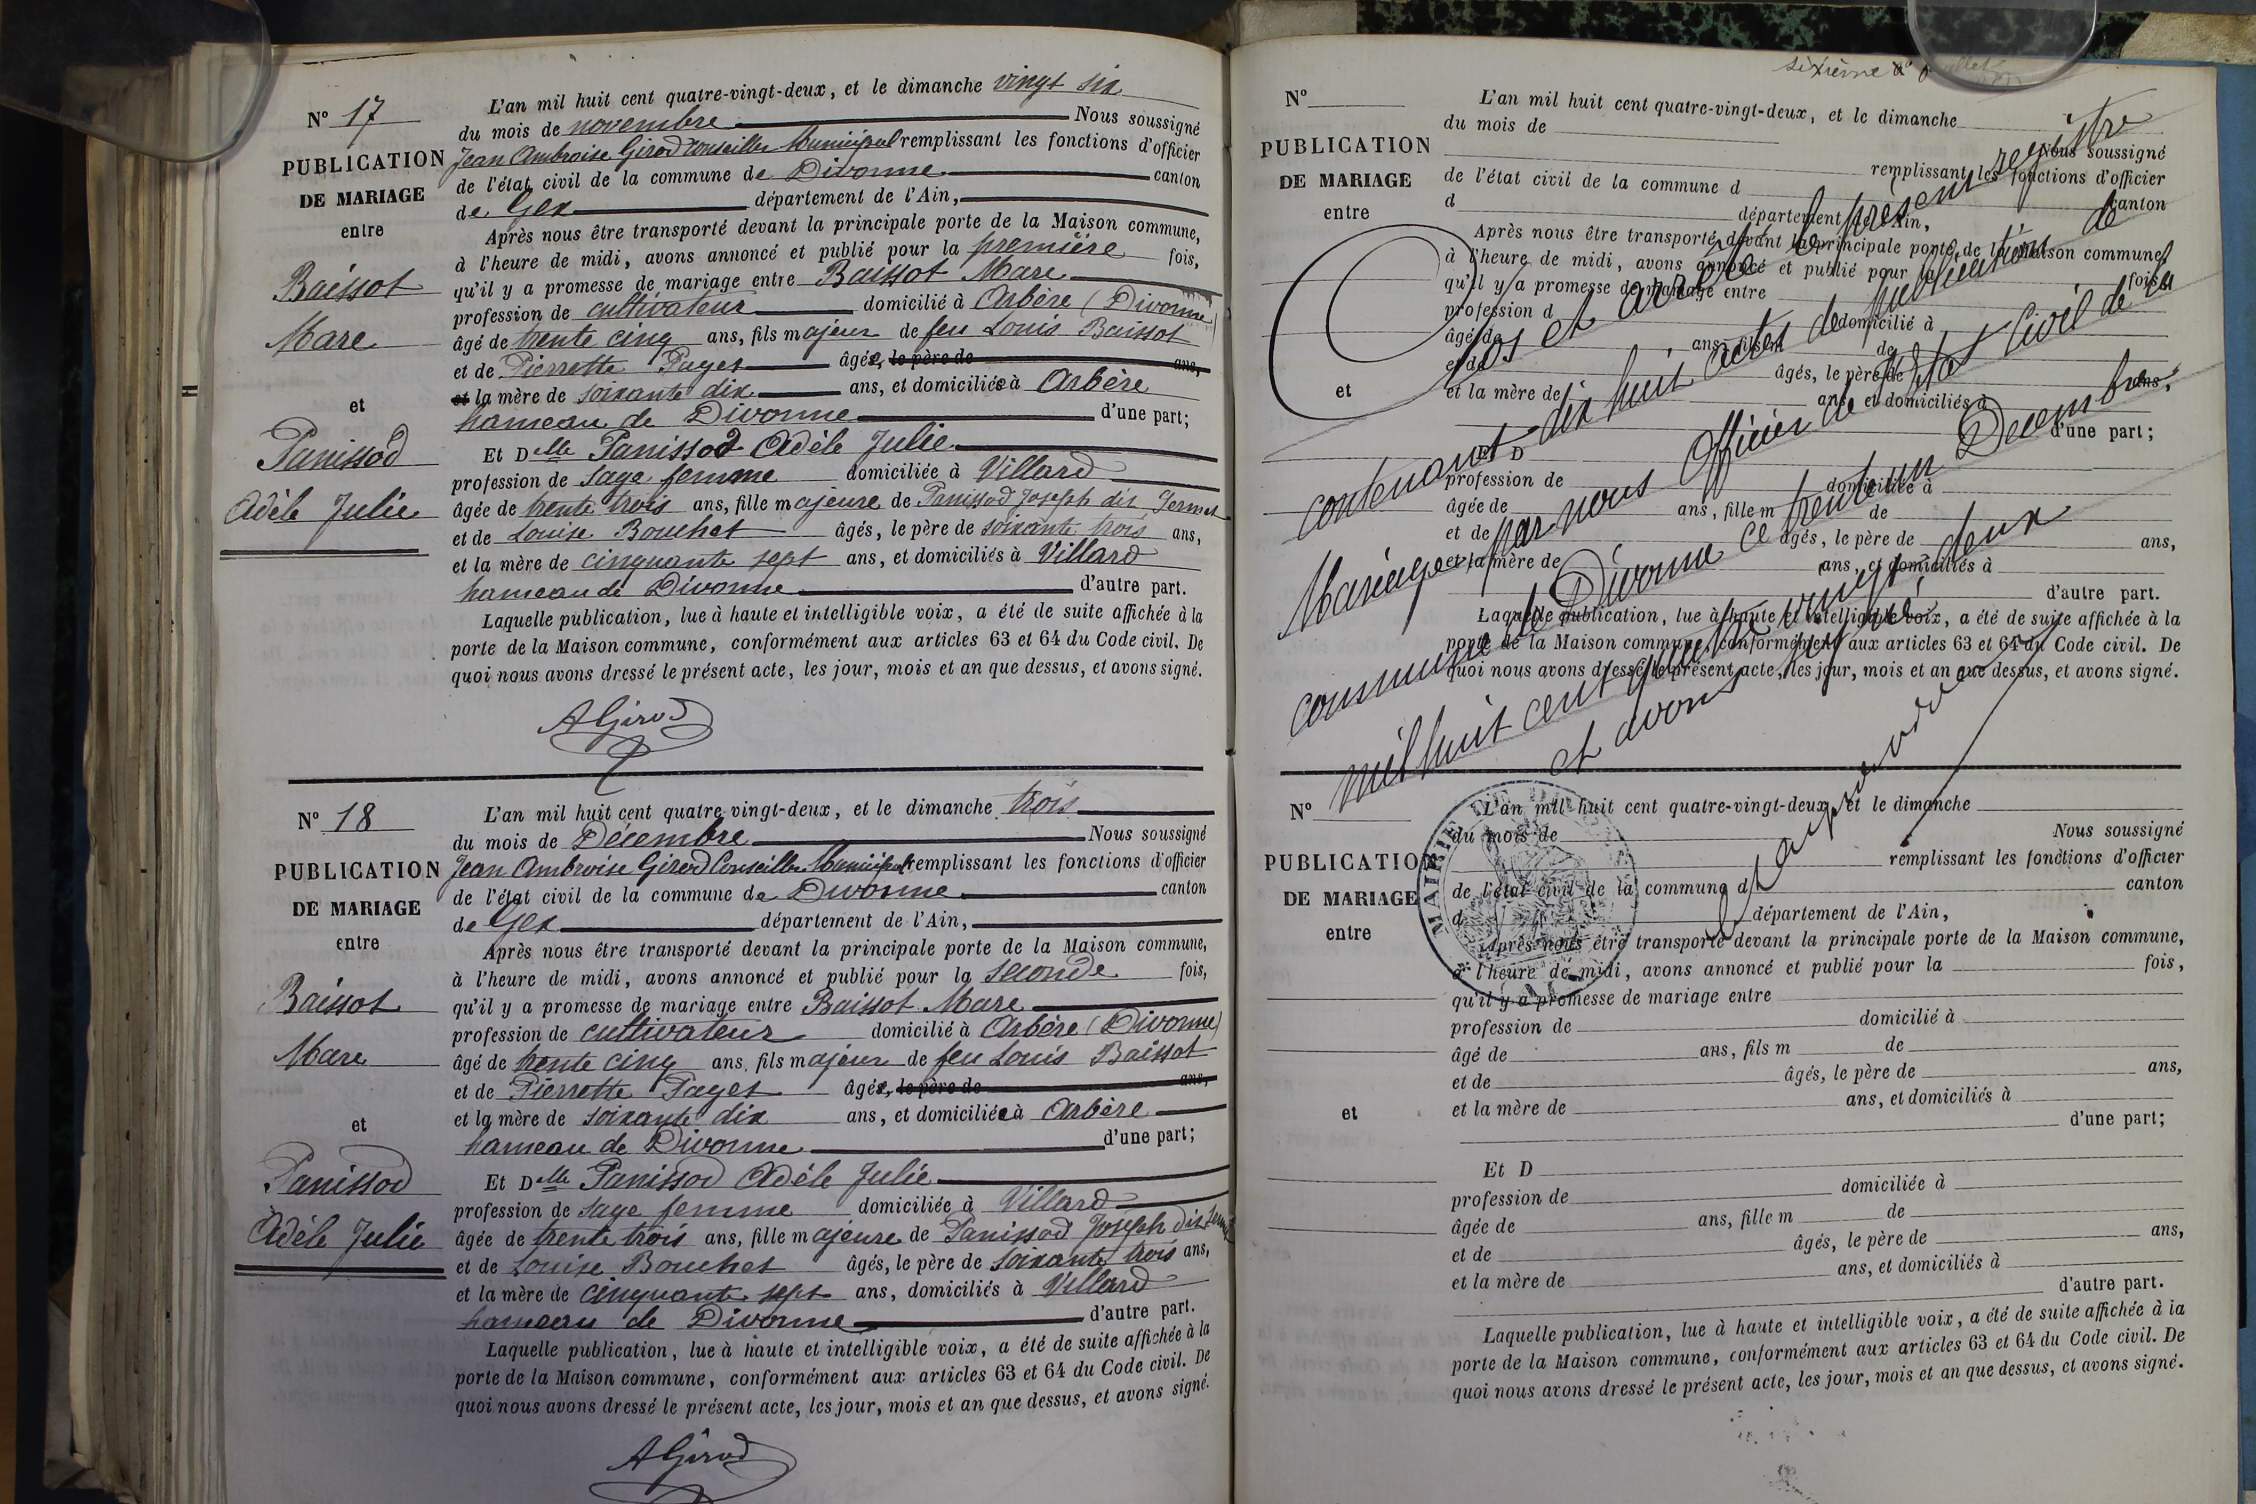 N° 17
PUBLICATION
DE MARIAGE
entre
Baissot
Marc
et
Panissod
Adèle Julie
L'an mil huit cent quatre-vingt-deux, et le dimanche vingt six
du mois de novembre Nous soussigné
Jean Ambroise Girod Conseiller Municipal remplissant les fonctions d'officier
de l'état civil de la commune de Divonne canton
de Gex département de l'Ain,
Après nous être transporté devant la principale porte de la Maison commune,
à l'heure de midi, avons annoncé et publié pour la première fois,
qu'il y a promesse de mariage entre Baissot Marc
profession de cultivateur domicilié à Arbère (Divonne)
âgé de trente cinq ans, fils majeur de feu Louis Baissot
et de Pierrette Payet âgée, le père de ans,
et la mère de soixante dix ans, et domiciliée à Arbère
hameau de Divonne d'une part;
Et Delle Panissod Adèle Julie
profession de sage femme domiciliée à Villard
âgée de trente trois ans, fille majeure de Panissod Joseph dit
et de Louise Bouchet âgés, le père de soixante trois ans,
et la mère de cinquante sept ans, et domiciliés à Villard
hameau de Divonne d'autre part.
Laquelle publication, lue à haute et intelligible voix, a été de suite affichée à la
porte de la Maison commune, conformément aux articles 63 et 64 du Code civil. De
quoi nous avons dressé le présent acte, les jour, mois et an que dessus, et avons signé.
AGirod
N° 18
PUBLICATION
DE MARIAGE
entre
Baissot
Marc
et
Panissod
Adèle Julie
L'an mil huit cent quatre-vingt-deux, et le dimanche trois
du mois de Décembre Nous soussigné
Jean Ambroise Girod Conseiller Municipal remplissant les fonctions d'officier
de l'état civil de la commune de Divonne canton
de Gex département de l'Ain,
Après nous être transporté devant la principale porte de la Maison commune,
à l'heure de midi, avons annoncé et publié pour la seconde fois,
qu'il y a promesse de mariage entre Baissot Marc
profession de cultivateur domicilié à Arbère (Divonne)
âgé de trente cinq ans, fils majeur de feu Louis Baissot
et de Pierrette Payet âgée, le père de ans,
et la mère de soixante dix ans, et domiciliée à Arbère
hameau de Divonne d'une part;
Et Delle Panissod Adèle Julie
profession de sage femme domiciliée à Villard
âgée de trente trois ans, fille majeure de Panissod Joseph dit
et de Louise Bouchet âgés, le père de soixante trois ans,
et la mère de cinquante sept ans, domiciliés à Villard
hameau de Divonne d'autre part.
Laquelle publication, lue à haute et intelligible voix, a été de suite affichée à la
porte de la Maison commune, conformément aux articles 63 et 64 du Code civil. De
quoi nous avons dressé le présent acte, les jour, mois et an que dessus, et avons signé.
AGirod
sixième
N°
PUBLICATION
DE MARIAGE
entre
et
L'an mil huit cent quatre-vingt-deux, et le dimanche
du mois de
Nous soussigné
remplissant les fonctions d'officier
de l'état civil de la commune d canton
d département de l'Ain,
Après nous être transporté devant la principale porte de la Maison commune,
à l'heure de midi, avons annoncé et publié pour la fois,
qu'il y a promesse de mariage entre
profession d domicilié à
âgé de ans, fils m de
et de âgés, le père de ans,
et la mère de ans, et domiciliés à
d'une part;
Et D
profession de domiciliée à
âgée de ans, fille m de
et de âgés, le père de ans,
et la mère de ans, et domiciliés à
d'autre part.
Laquelle publication, lue à haute et intelligible voix, a été de suite affichée à la
porte de la Maison commune, conformément aux articles 63 et 64 du Code civil. De
quoi nous avons dressé le présent acte, les jour, mois et an que dessus, et avons signé.
Clos et arrêté le présent registre
contenant dix huit actes de publications de
Mariage par nous Officier de l'état Civil de la
commune de Divonne ce trente un Decembre
mil huit cent quatre vingt deux
et avons signé
MAIRIE DE
N°
PUBLICATION
DE MARIAGE
entre
et
L'an mil huit cent quatre-vingt-deux, et le dimanche
du mois de Nous soussigné
remplissant les fonctions d'officier
de l'état civil de la commune d canton
d département de l'Ain,
Après nous être transporté devant la principale porte de la Maison commune,
à l'heure de midi, avons annoncé et publié pour la fois,
qu'il y a promesse de mariage entre
profession de domicilié à
âgé de ans, fils m de
et de âgés, le père de ans,
et la mère de ans, et domiciliés à
d'une part;
Et D
profession de domiciliée à
âgée de ans, fille m de
et de âgés, le père de ans,
et la mère de ans, et domiciliés à
d'autre part.
Laquelle publication, lue à haute et intelligible voix, a été de suite affichée à la
porte de la Maison commune, conformément aux articles 63 et 64 du Code civil. De
quoi nous avons dressé le présent acte, les jour, mois et an que dessus, et avons signé.